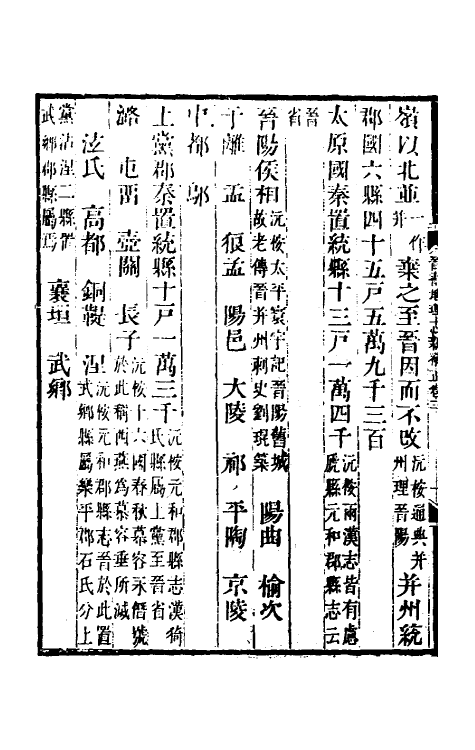 嶺以北並一作并棄之至晉因而不改沅按通典并州理晉陽并州統
郡國六縣四十五戸五萬九千三百
太原國秦置統縣十三戸一萬四千沅按兩漢志皆有慮虒縣元和郡縣志云晉省
晉陽侯相沅按太平寰宇記晉陽舊城故老傳晉并州刺史劉琨築 陽曲 榆次
于離 盂 狼孟 陽邑 大陵 祁 平陶 京陵
中都 鄔
上黨郡秦置統縣十戸一萬三千沅按元和郡縣志漢猗氏縣屬上黨至晉省
潞 屯留 壺關 長子沅按十六國春秋慕容永僭號於此稱西燕為慕容垂所滅
泫氏 高都 銅鞮 涅沅按元和郡縣志晉於此置武鄉縣屬樂平郡石氏分上
黨沾涅二縣置武鄉郡縣屬焉 襄垣 武鄉